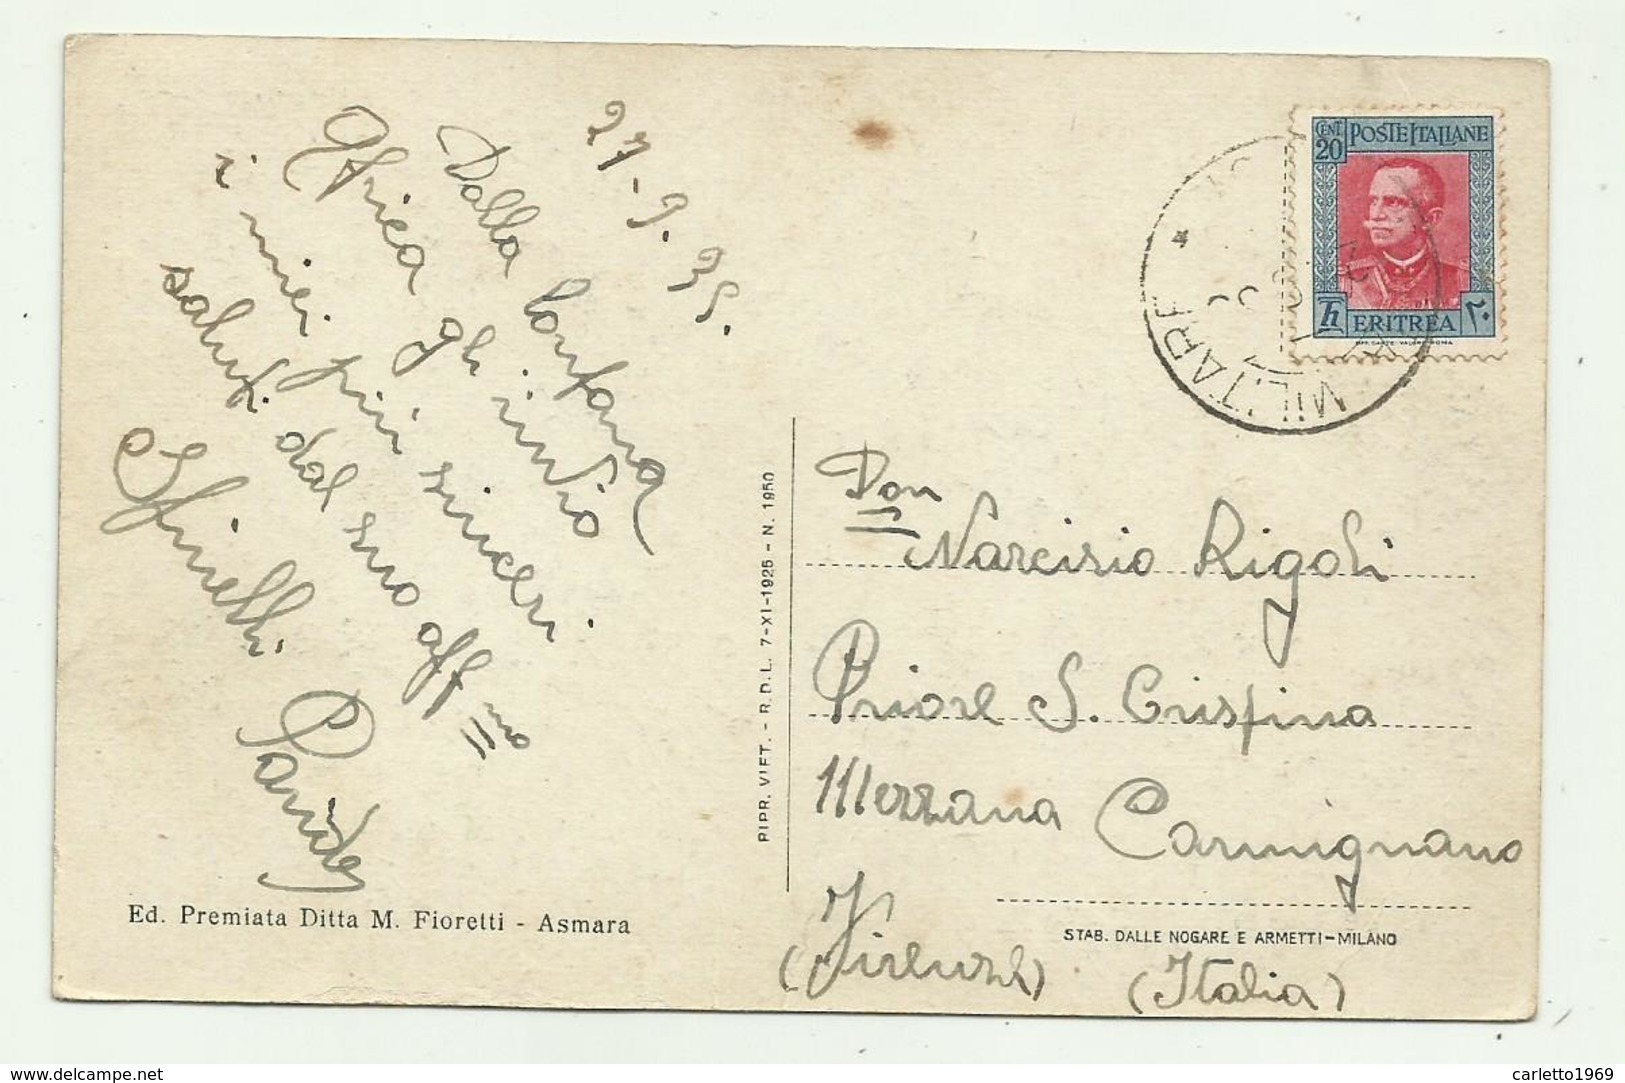 27-9-35.
Dalla lontana
Africa gli invio
i miei più sinceri
saluti dal suo aff mo
Paride
Ed. Premiata Ditta M. Fioretti - Asmara
RIPR. VIET. - R.D.L. 7-XI-1925 - N. 1950
CENT 20 POSTE ITALIANE
ERITREA ٢٠
MILITARE
Don
Narcisio Rigoli
Priore S. Crispina
Mezzana Carmignano
(Firenze) (Italia)
STAB. DALLE NOGARE E ARMETTI-MILANO
delcampe.net
carletto1969